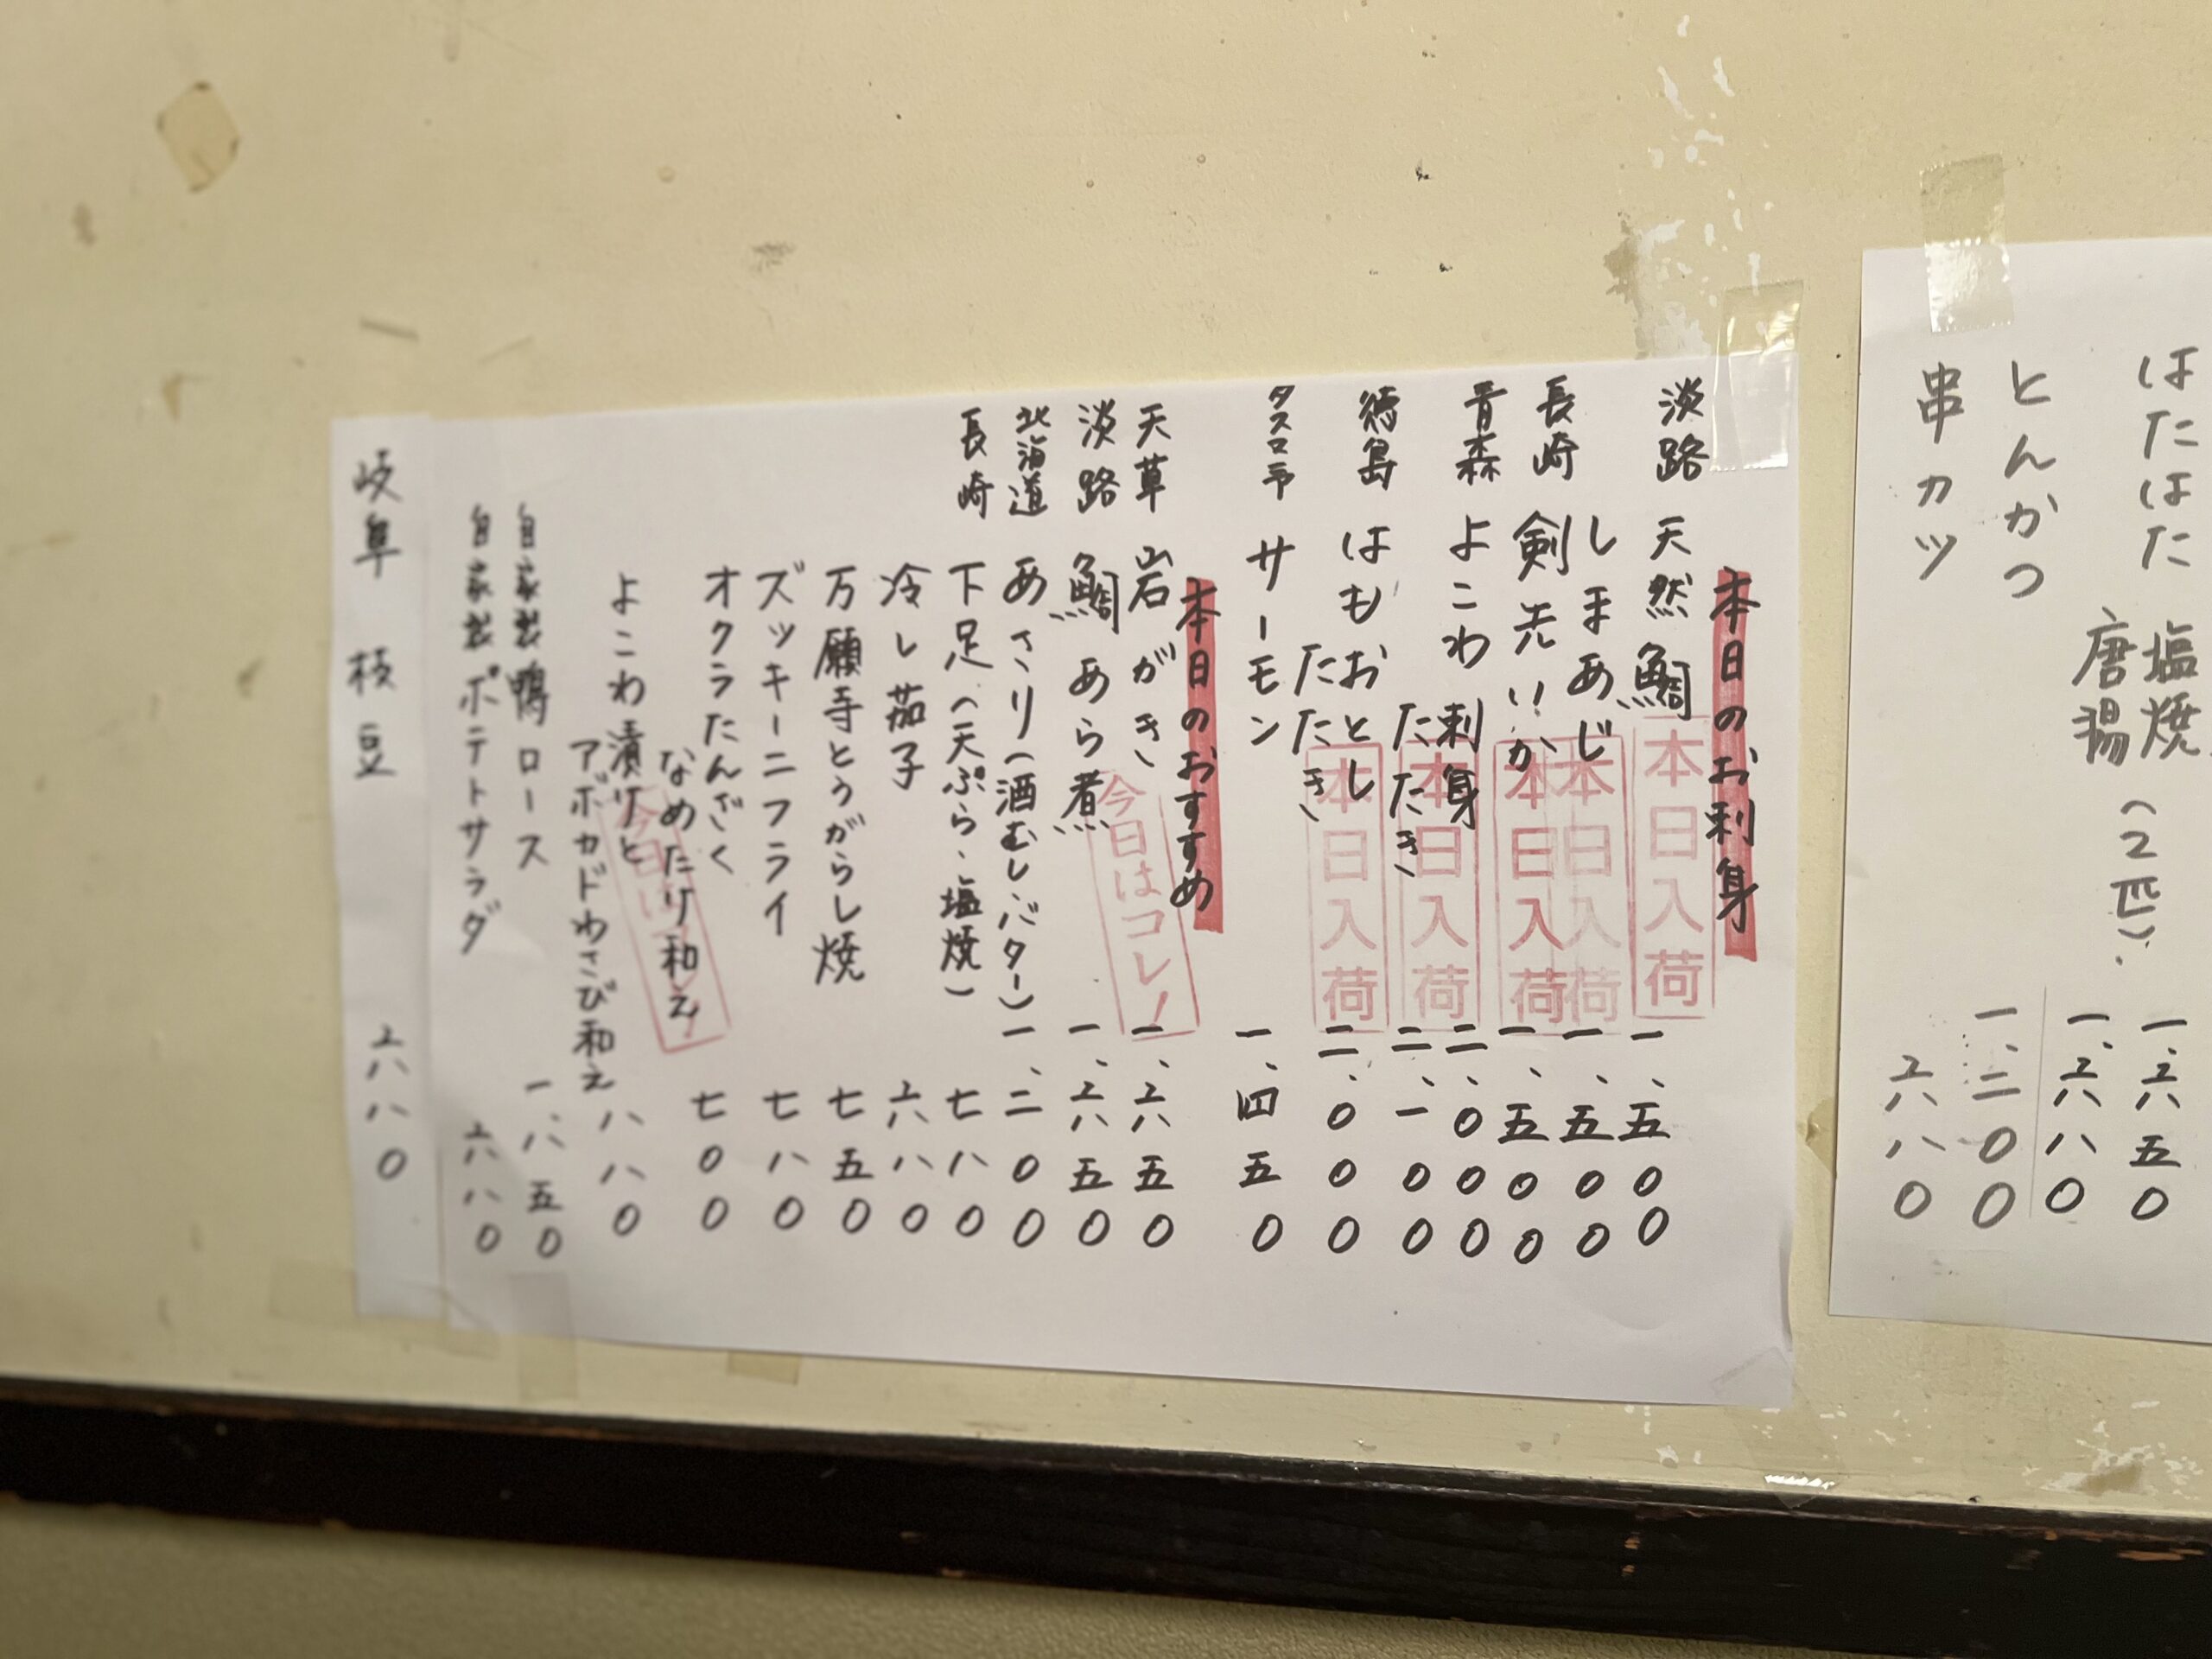 はたはた 塩焼 一、六五〇
唐揚(2匹) 一、六八〇
とんかつ 一、二〇〇
串カツ 六八〇
本日のお刺身
淡路 天然鯛 一、五〇〇
本日入荷
長崎 しまあじ 一、五〇〇
本日入荷
剣先いか 一、五〇〇
本日入荷
青森 よこわ 刺身 二、〇〇〇
たたき 二、一〇〇
本日入荷
徳島 はもおとし 二、〇〇〇
たたき
本日入荷
タスマニヤ サーモン 一、四五〇
本日のおすすめ
天草 岩がき 一、六五〇
今日はコレ!
淡路 鯛あら煮 一、六五〇
北海道 あさり(酒むし、バター) 一、二〇〇
長崎 下足(天ぷら、塩焼) 七八〇
冷し茄子 六八〇
万願寺とうがらし焼 七五〇
ズッキーニフライ 七八〇
オクラたんざく
なめたけ和え 七〇〇
今日はコレ!
よこわ漬けと
アボカドわさび和え 八八〇
自家製鴨ロース 一、八五〇
自家製ポテトサラダ 六八〇
岐阜 枝豆 六八〇